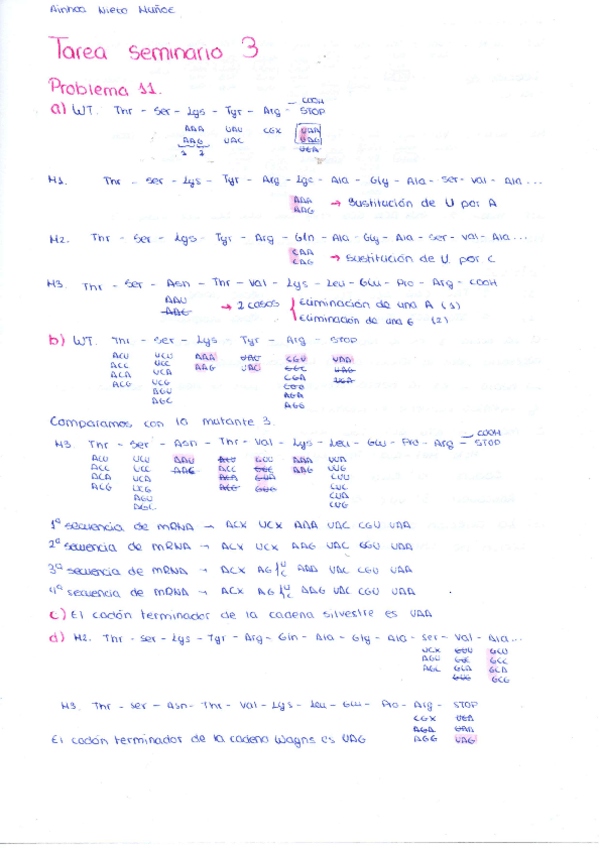 Ainhoa Nieto Muñoz
Tarea seminario 3
Problema 11.
a) WT. Thr - Ser - Lys - Tyr - Arg - STOP COOH
AAA UAU CGX UAA
AAG UAC UAG
1 2 UGA
M1. Thr - Ser - Lys - Tyr - Arg - Lys - Ala - Gly - Ala - Ser - Val - Ala ...
AAA → Sustitución de U por A
AAG
M2. Thr - Ser - Lys - Tyr - Arg - Gln - Ala - Gly - Ala - Ser - Val - Ala ...
CAA → Sustitución de U por C
CAG
M3. Thr - Ser - Asn - Thr - Val - Lys - Leu - Glu - Pro - Arg - COOH
AAU → 2 casos Eliminación de una A (1)
AAC Eliminación de una G (2)
b) WT. Thr - Ser - Lys - Tyr - Arg - STOP
ACU UCU AAA UAU CGU UAA
ACC UCC AAG UAC CGC UAG
ACA UCA CGA UGA
ACG UCG CGG
AGU AGA
AGC AGG
Comparamos con la mutante 3.
M3. Thr - Ser - Asn - Thr - Val - Lys - Leu - Glu - Pro - Arg - STOP COOH
ACU UCU AAU ACU GUU AAA UUA
ACC UCC AAC ACC GUC AAG UUG
ACA UCA ACA GUA CUU
ACG UCG ACG GUG CUC
AGU CUA
AGC CUG
1ª secuencia de mRNA → ACX UCX AAA UAC CGU UAA
2ª secuencia de mRNA → ACX UCX AAG UAC CGU UAA
3ª secuencia de mRNA → ACX AG{U C AAA UAC CGU UAA
4ª secuencia de mRNA → ACX AG{U C AAG UAC CGU UAA
c) El codón terminador de la cadena silvestre es UAA
d) M2. Thr - Ser - Lys - Tyr - Arg - Gln - Ala - Gly - Ala - Ser - Val - Ala ...
UCX GUU GCU
AGU GUC GCC
AGC GUA GCA
GUG GCG
M3. Thr - Ser - Asn - Thr - Val - Lys - Leu - Glu - Pro - Arg - STOP
CGX UGA
AGA UAA
El codón terminador de la cadena Wagns es UAG AGG UAG